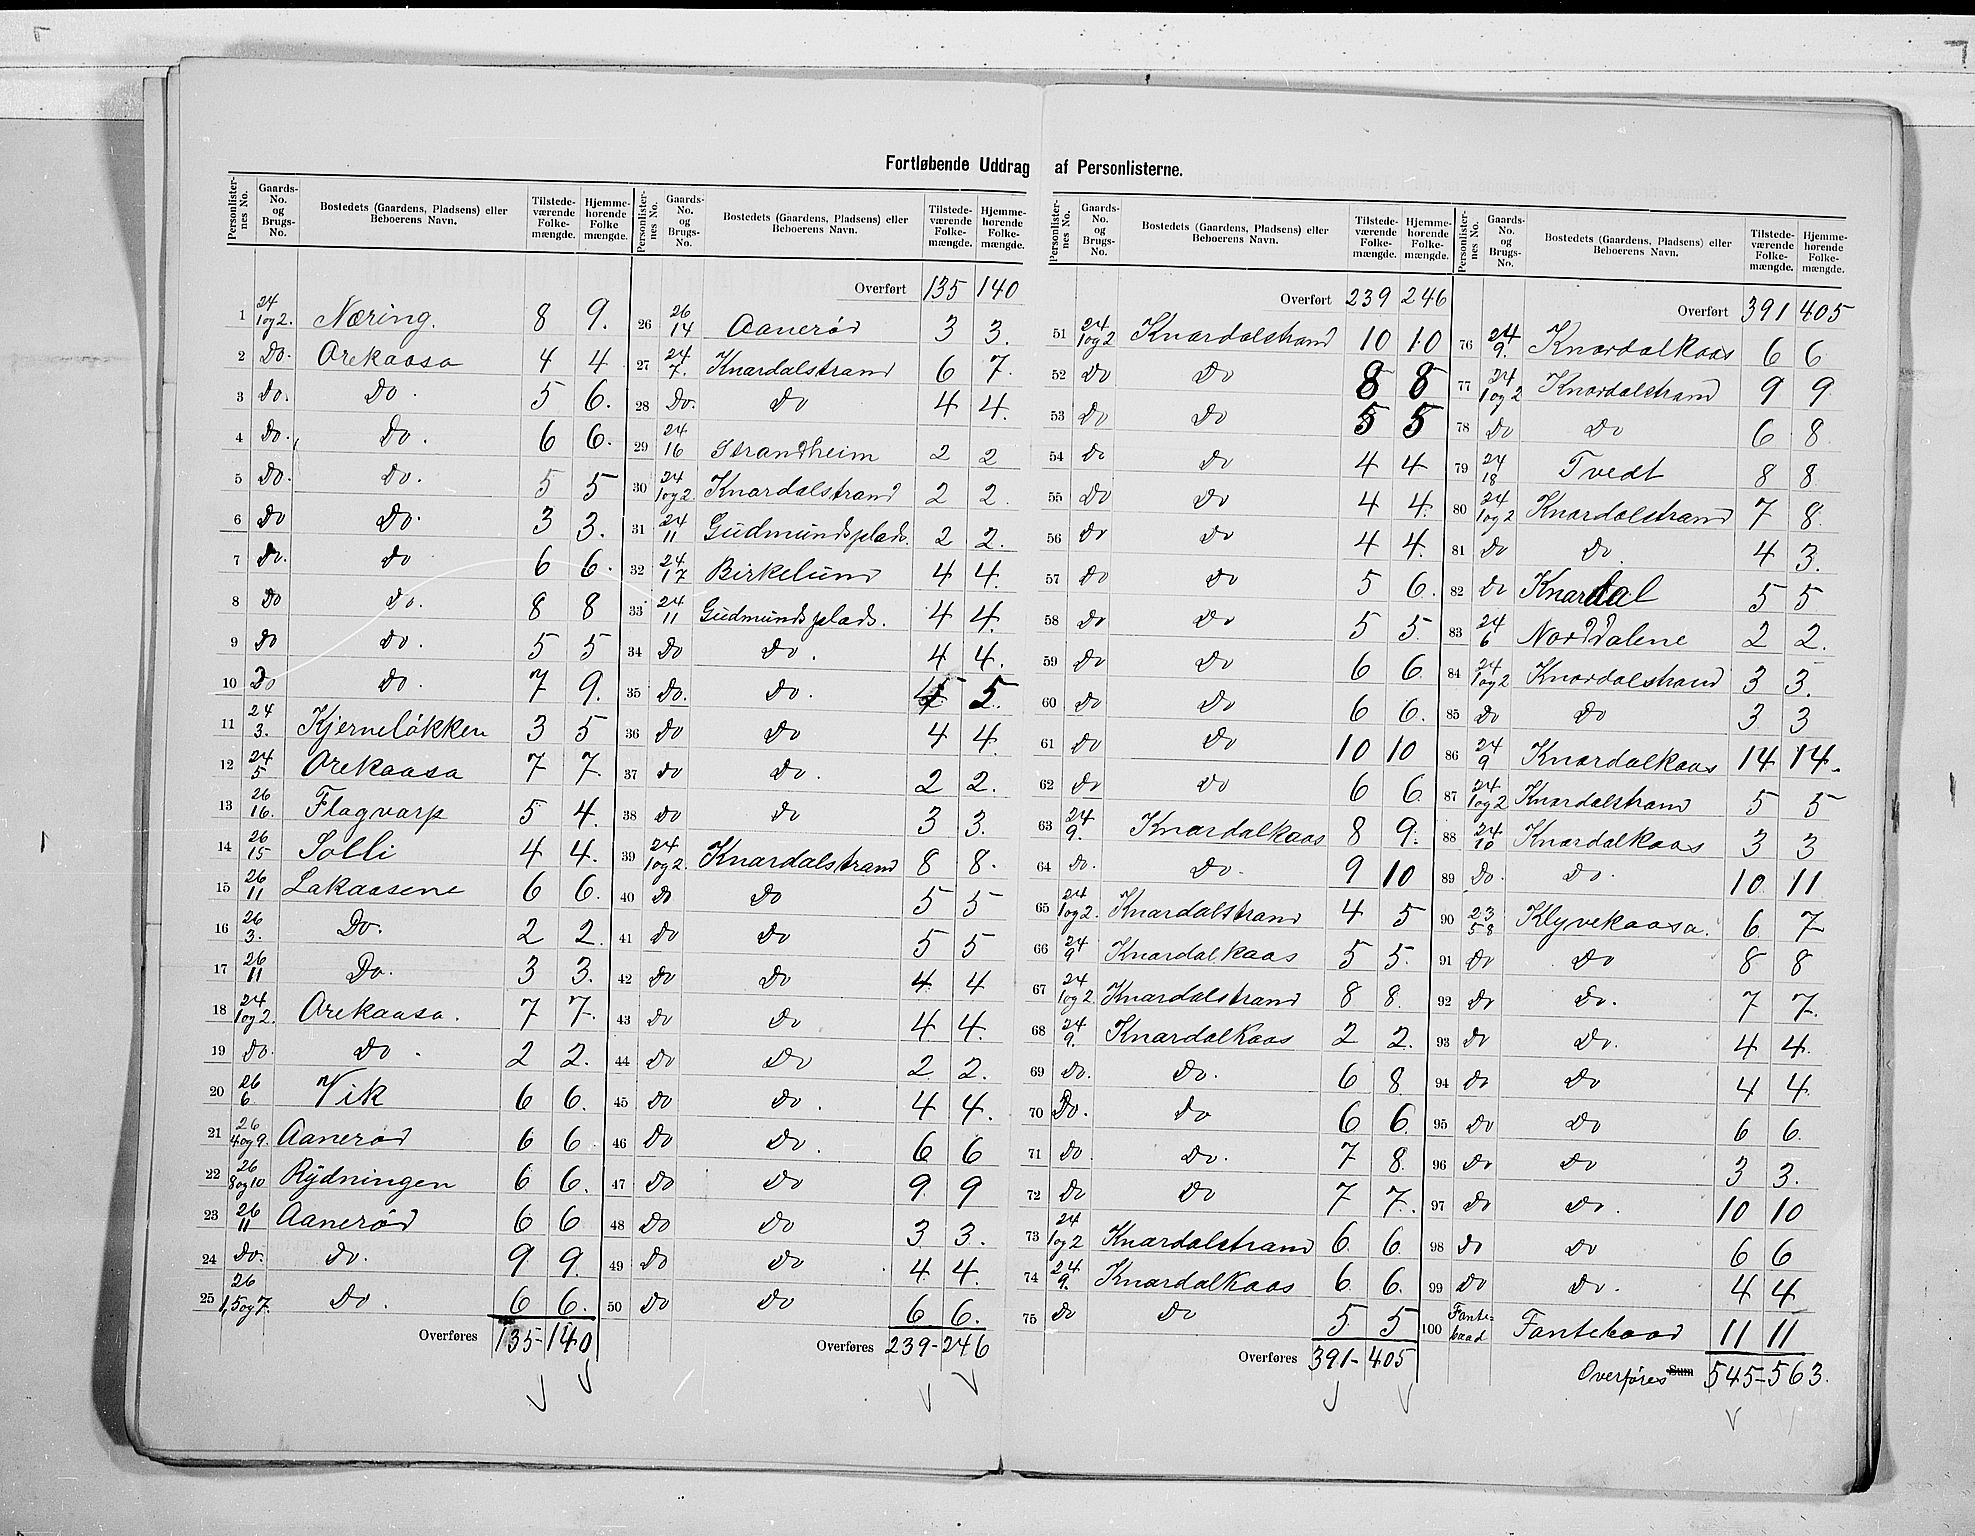 Fortløbende Uddrag af Personlisterne.
Personlister-nes No. | Gaards-No. og Brugs-No. | Bostedets (Gaardens, Pladsens) eller Beboerens Navn. | Tilstede-værende Folke-mængde. | Hjemme-hørende Folke-mængde.
1 | 24 1og2. | Næring. | 8 | 9.
2 | Do. | Orekaasa | 4 | 4
3 | Do. | Do. | 5 | 6.
4 | Do. | Do. | 6 | 6.
5 | Do. | Do. | 5 | 5
6 | Do | Do. | 3 | 3.
7 | Do. | Do | 6 | 6.
8 | Do | Do. | 8 | 8
9 | Do | Do. | 5 | 5
10 | Do | Do. | 7 | 9.
11 | 24 3. | Kjerneløkken | 3 | 5
12 | 24 5 | Orekaasa | 7 | 7.
13 | 26 16. | Flagvarp | 5 | 4.
14 | 26 15 | Solli | 4 | 4.
15 | 26 11 | Lakaasene | 6 | 6.
16 | 26 3. | Do. | 2 | 2.
17 | 26 11 | Do. | 3 | 3.
18 | 24 1og2. | Orekaasa. | 7 | 7.
19 | Do. | Do. | 2 | 2.
20 | 26 6. | Vik | 6 | 6.
21 | 26 4og9. | Aanerød | 6 | 6
22 | 26 8og10 | Rydningen | 6 | 6.
23 | 26 11 | Aanerød | 6 | 6
24 | Do. | Do. | 9 | 9.
25 | 26 1,5og7. | Do. | 6 | 6.
Overføres 135-140
Personlister-nes No. | Gaards-No. og Brugs-No. | Bostedets (Gaardens, Pladsens) eller Beboerens Navn. | Tilstede-værende Folke-mængde. | Hjemme-hørende Folke-mængde.
Overført 135 140
26 | 26 14 | Aanerød | 3 | 3.
27 | 24 7. | Knardalstrand | 6 | 7.
28 | Do. | Do | 4 | 4.
29 | 24 16 | Strandheim | 2 | 2
30 | 24 1og2 | Knardalstrand | 2 | 2.
31 | 24 11 | Gudmundsplads. | 2 | 2.
32 | 24 17 | Birkelund | 4 | 4.
33 | 24 11 | Gudmundsplads. | 4 | 4.
34 | Do | Do. | 4 | 4.
35 | Do. | Do. | 5 | 5.
36 | Do | Do | 4 | 4.
37 | Do | Do. | 2 | 2.
38 | Do | Do | 3 | 3.
39 | 24 1og2. | Knardalstrand | 8 | 8.
40 | Do | Do | 5 | 5
41 | Do | Do | 5 | 5
42 | Do | Do | 4 | 4
43 | Do | Do | 4 | 4.
44 | Do | Do | 2 | 2.
45 | Do | Do. | 4 | 4.
46 | Do | Do. | 6 | 6
47 | Do | Do | 9 | 9
48 | Do | Do | 3 | 3.
49 | Do | Do | 4 | 4.
50 | Do | Do | 6 | 6.
Overføres 239-246
Personlister-nes No. | Gaards-No. og Brugs-No. | Bostedets (Gaardens, Pladsens) eller Beboerens Navn. | Tilstede-værende Folke-mængde. | Hjemme-hørende Folke-mængde.
Overført 239 246
51 | 24 1og2 | Knardalstrand | 10 | 10
52 | Do | Do | 8 | 8
53 | Do | Do | 5 | 5
54 | Do | Do | 4 | 4
55 | Do | Do | 4 | 4.
56 | Do | Do | 4 | 4.
57 | Do | Do | 5 | 6.
58 | Do | Do | 5 | 5.
59 | Do | Do | 6 | 6.
60 | Do | Do | 6 | 6.
61 | Do | Do | 10 | 10
62 | Do | Do | 6 | 6.
63 | 24 9. | Knardalkaas | 8 | 9.
64 | Do. | Do. | 9 | 10
65 | 24 1og2. | Knardalstrand | 4 | 5
66 | 24 9 | Knardalkaas | 5 | 5.
67 | 24 1og2. | Knardalstrand | 8 | 8.
68 | 24 9. | Knardalkaas | 2 | 2.
69 | Do. | Do. | 6 | 8
70 | Do. | Do | 6 | 6.
71 | Do. | Do. | 7 | 8.
72 | Do | Do | 7 | 7.
73 | 24 1og2 | Knardalstrand | 6. | 6.
74 | 24 9. | Knardalkaas | 6 | 6.
75 | Do | Do | 5 | 5
Overføres 391-405
Personlister-nes No. | Gaards-No. og Brugs-No. | Bostedets (Gaardens, Pladsens) eller Beboerens Navn. | Tilstede-værende Folke-mængde. | Hjemme-hørende Folke-mængde.
Overført 391 405
76 | 24 9. | Knardalkaas | 6 | 6
77 | 24 1og2 | Knardalstrand | 9 | 9.
78 | Do | Do | 6 | 8.
79 | 24 18 | Tvedt | 8 | 8.
80 | 24 1og2 | Knardalstrand | 7 | 8.
81 | Do | Do. | 4 | 3.
82 | Do | Knardal | 5 | 5
83 | 24 6 | Norddalene | 2 | 2.
84 | 24 1og2 | Knardalstrand | 3 | 3.
85 | Do | Do | 3 | 3
86 | 24 9 | Knardalkaas | 14 | 14.
87 | 24 1og2 | Knardalstrand | 5 | 5
88 | 24 10 | Knardalkaas | 3 | 3
89 | Do. | Do. | 10 | 11
90 | 23 58 | Klyvekaasa. | 6 | 7
91 | Do | Do | 8 | 8
92 | Do | Do. | 7 | 7.
93 | Do | Do. | 4 | 4.
94 | Do | Do | 4 | 4.
95 | Do | Do | 6 | 6.
96 | Do | Do | 3 | 3.
97 | Do | Do. | 10 | 10
98 | Do | Do | 6 | 6
99 | Do | Do. | 4 | 4
100 | Fante-baad | Fantebaad | 11 | 11
Overføres Sum 545-563.